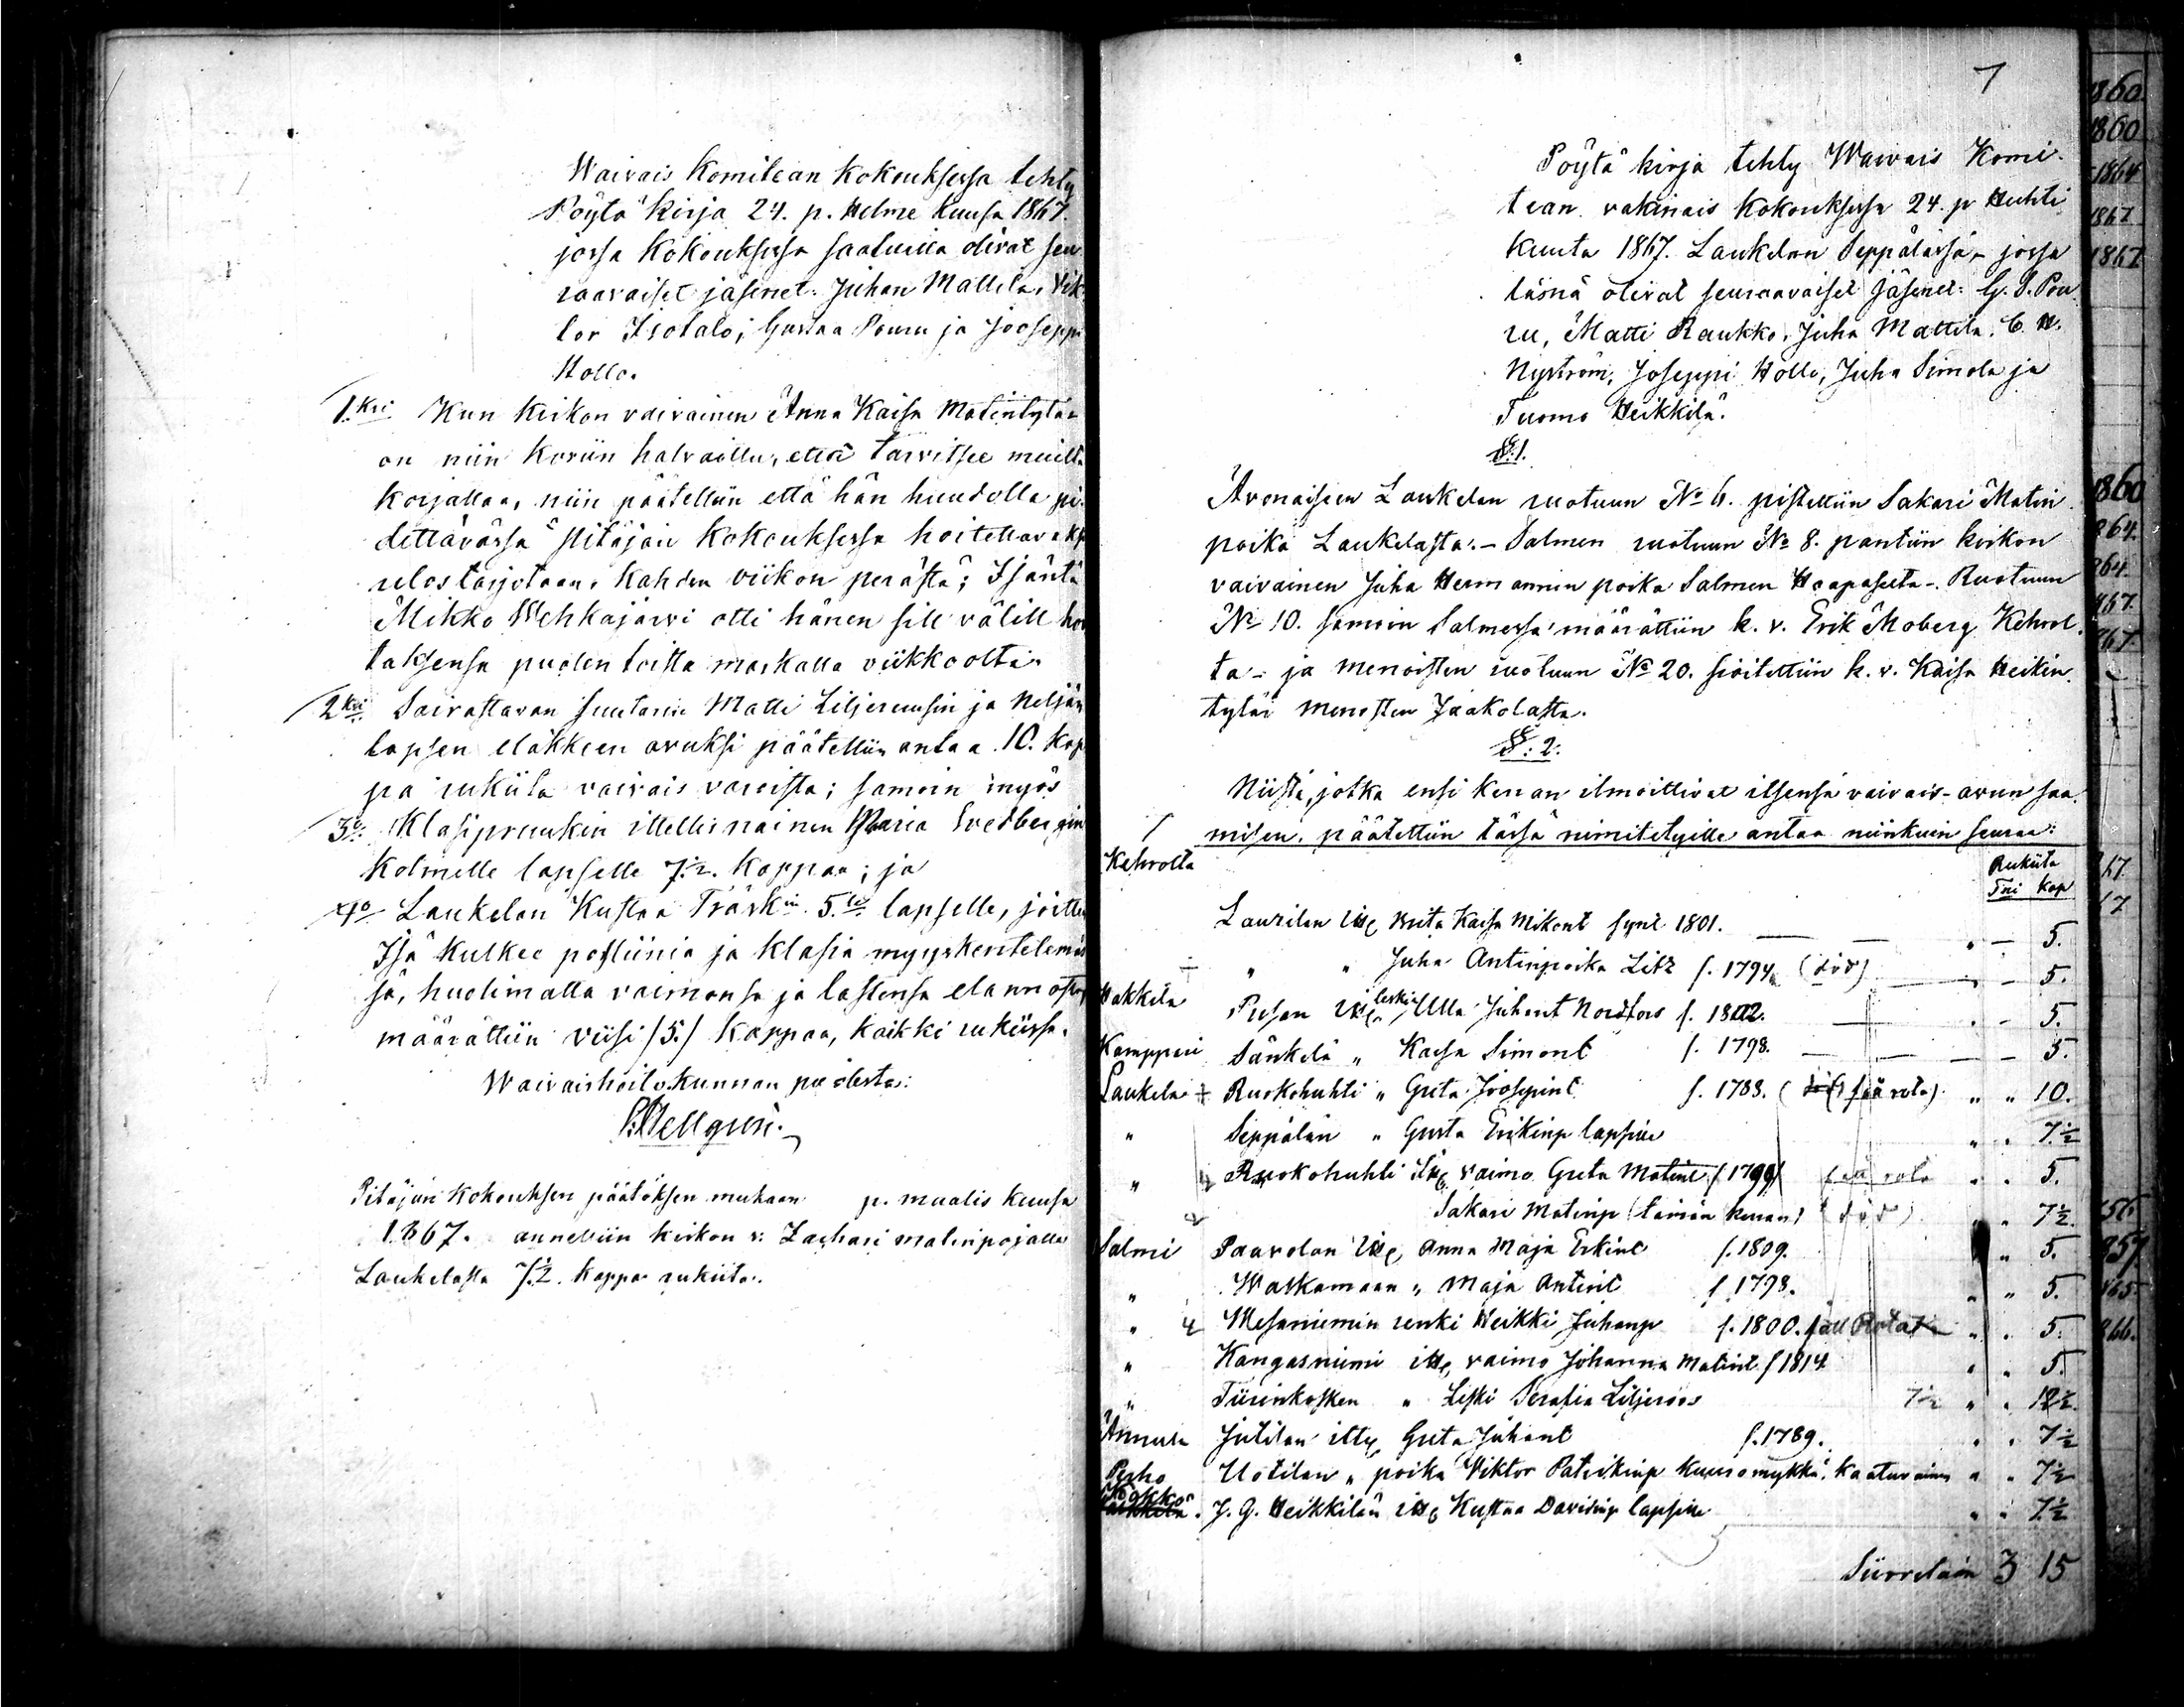 Waivais Komitean Kokouksessa tehty
Pöytä kirja 24. p. Helme kuusa 1867.
jossa Kokouksessa saatuilla olivat seu
raavaiset jäsenet: Juhan Mattila, Vik
tor Isotalo, Gustaa Pouru ja Jooseppi
Hollo.
1.ksi Kun kirkon vaivainen Anna Kaisa Matintytär
on niin koviin halvaillu, että tarvitsee muilta
korjallaa, niin päätettiin että hän huudolla pi
dettävässä pitäjän Kokouksessa hoitettavaksi
ulostarjotaan, kahden viikon perästä; Isäntä
Mikko Wehkajärvi otti hänen sill välill hoi
taksensa puolentoista markalla viikkoolta.
2ksi Sairastavan suutarin Matti Liljeruusin ja neljän
lapsen eläkkeen avuksi päätettiin antaa 10. kap
pa rukiita vaivais varoista; samoin myös
3o. Klasipruukin ittellisnainen Maria Svedbergin
Kolmelle lapselle 7 1/2. Kappaa; ja
4o Laukelan Kustaa Träsk in 5.lle lapselle, joitten
Isä kulkee posliinia ja klasia myyskentelemäs
sä, huolimatta vaimonsa ja lastensa elannosta
määrättiin viisi /5./ Kappaa, kaikki rukiissa.
Waivaishoito kunnan puolesta:
Hellgren.
Pitäjän Kokouksen päätöksen mukaan p. maalis kuusa
1867. annettiin kirkon v: Zachari matinpojalle
Laukelasta 7 1/2. Kappa rukiita.
7
Pöytä kirja tehty Waivais Komi
tean vakinais Kokouksessa 24. p Huhti
kuuta 1867. Laukelan Seppälässä, jossa
läsnä olivat seuraavaiset Jäsenet: G. S. Pou
ru, Matti Raukko, Juha Mattila, C. W.
Nyström, Joseppi Hollo, Juha Simola ja
Tuomo Heikkilä.
§.1.
Avonaiseen Laukelan ruotuun No 6. pistettiin Sakari Matin
poika Laukelasta. - Salmen ruotuun No 8. pantiin kirkon
vaivainen Juha Hermannin poika Salmen Haapaselta. - Ruotuun
No 10. samoin Salmessa määrättiin k. v. Erik Moberg Kehrol
ta - ja menoisten ruotuun No 20. sioitettiin k. v. Kaisa Heikin
tytär menoisten Jaakolasta.
§: 2.
Niistä, jotka ensi kerran ilmoittivat itsensä vaivais-avun saa
misen, päätettiin tässä nimitetyille antaa niinkuin seuraa:
Kehrolta
Rukiita
Tni Kap
Laurilan itte Brita Kaisa Mikont synt 1801. — — 5.
" " Juha Antinpoika Litz s. 1794. (död) — 5.
Hakkila Pusan itte leski Ulla Juhant Nordfors s. 1802. — 5.
Kamppari Sänkelä " Kaisa Simont s. 1798. — — 5.
Laukela Ruokohuhti " Greta Joosepint s. 1788. (får rota) " " 10.
" Seppälän " Gusta Erikinp lapsille " " 7 1/2
" Ruokohuhti itte vaimo Greta Matint s. 1799 får rota " " 5.
Sakari Matinp (tämän kerran) (död) " " 7 1/2
Salmi Paavolan itte, Anna Maja Erkint s. 1809. " 5.
" Waskamaan " Maja Antint s. 1798. " " 5.
" Mesaniemin renki Heikki Juhanp s. 1800. fått Rotat " " 5.
" Kangasniemi itte vaimo Johanna Matint s 1814. " " 5.
" Tiirinkosken " Leski Serafia Liljeroos 7 1/2 " " 12 1/2.
Annula Jutilan itte Greta Juhant s. 1789. " " 7 1/2
Pesho Uotilan " poika Viktor Patrikinp kuuromykkä, kaatuvainen " " 7 1/2
Kokko J. G. Heikkilän itte Kustaa Davidinp lapsille " " 7 1/2
Siirretään 3 15
1860
1860
1864
1867
1867
1860